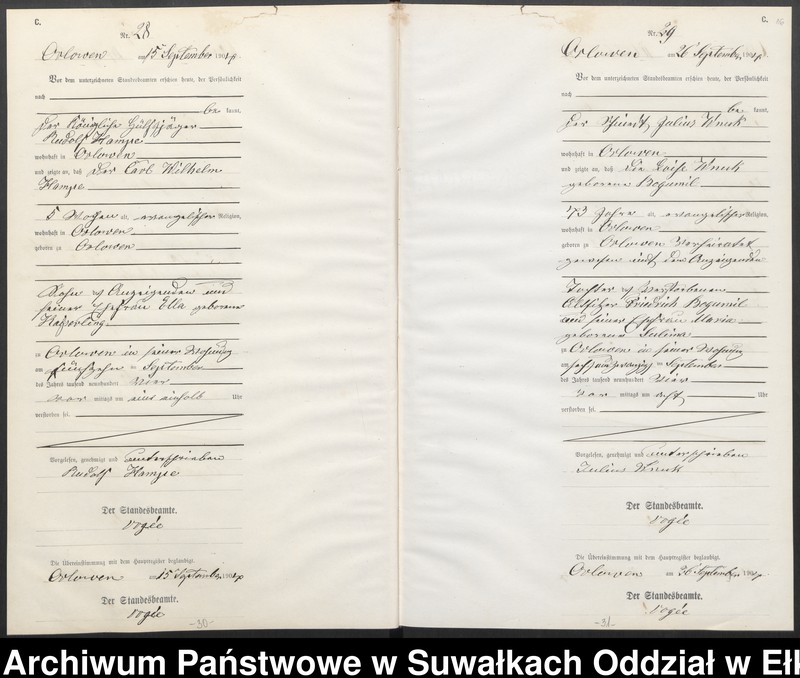 C.
Nr. 28
Orlowen am 15 September 1904
Vor dem unterzeichneten Standesbeamten erschien heute, der Persönlichkeit
nach
be kannt,
der Königliche Hülfsjäger
Rudolf Hampe
wohnhaft in Orlowen
und zeigte an, daß der Carl Wilhelm
Hampe
5 Wochen alt, evangelischer Religion,
wohnhaft in Orlowen
geboren zu Orlowen
Sohn des Anzeigenden und
seiner Ehefrau Ella geborene
zu Orlowen in seiner Wohnung
am fünfzehn ten September
des Jahres tausend neunhundert vier
vor mittags um ein einhalb Uhr
verstorben sei.
Vorgelesen, genehmigt und unterschrieben
Rudolf Hampe
Der Standesbeamte.
Vogée
Die Übereinstimmung mit dem Hauptregister beglaubigt.
Orlowen am 15 September 1904
Der Standesbeamte.
Vogée
-30-
C.
16
Nr. 29
Orlowen am 26 September 1904
Vor dem unterzeichneten Standesbeamten erschien heute, der Persönlichkeit
nach
be kannt,
der Julius Knuk
wohnhaft in Orlowen
und zeigte an, daß die Louise Knuk
geborene Bogumil
73 Jahre alt, evangelischer Religion,
wohnhaft in Orlowen
geboren zu Orlowen verheiratet
gewesen mit dem Anzeigenden
Tochter des verstorbenen
Altsitzer Friedrich Bogumil
und seiner Ehefrau Maria
geborene
zu Orlowen in seiner Wohnung
am sechsundzwanzig ten September
des Jahres tausend neunhundert vier
vor mittags um acht Uhr
verstorben sei.
Vorgelesen, genehmigt und unterschrieben
Julius Knuk
Der Standesbeamte.
Vogée
Die Übereinstimmung mit dem Hauptregister beglaubigt.
Orlowen am 26 September 1904
Der Standesbeamte.
Vogée
-31-
Archiwum Państwowe w Suwałkach Oddział w Ełk